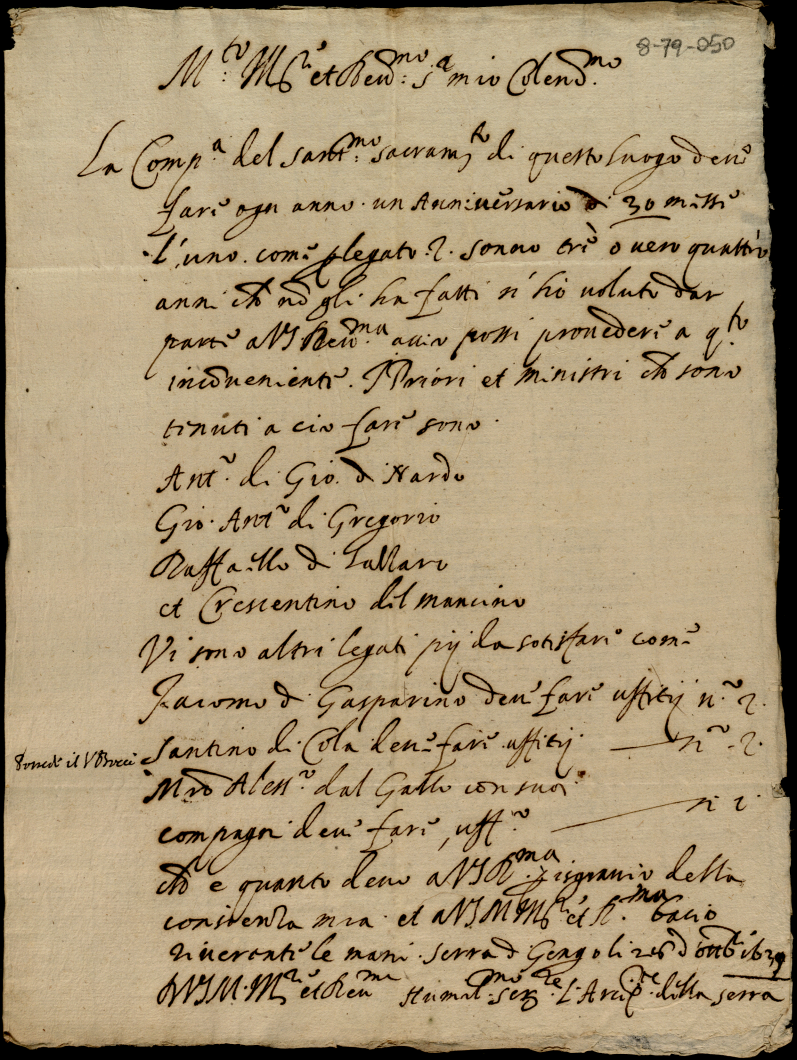 8-79-050
M:to Ill.re et Reud:mo S.r mio Colend.mo
La Comp.a del sant:mo sacram.to di questo luogo deue
fare ogn anno un Anniuersario di 30 messe
l'uno come p legato 2. sonno tre o uero quattro
anni che nõ gli ha fatti n'hò uoluto dar
parte a VS Reu.ma accio possi prouedere a q.to
incõueniente. I Priori et ministri che sono
tenuti a cio fare sono
Ant.o di Gio. di Nardo
Gio. Ant.o di Gregorio
Raffaello di
et Crescentino del mancino
Vi sono altri legati pij da sotisfare come
Jacomo di Gasparino deue fare uffitij n.o 2.
il V
Santino di Cola deue fare uffitij n.o 2.
Aless.o dal Gallo con suoi
compagni deue fare uff.o n 2.
che e quanto deuo a VS R.ma p isgrauio della
conscienza mia et a VS M Ill.re et R.ma bacio
riuerente le mani. serra di Gengoli 28 d ottob
D VS M. Ill.re et Reu.ma Humil.mo ser.re L'Arcip.te della serra